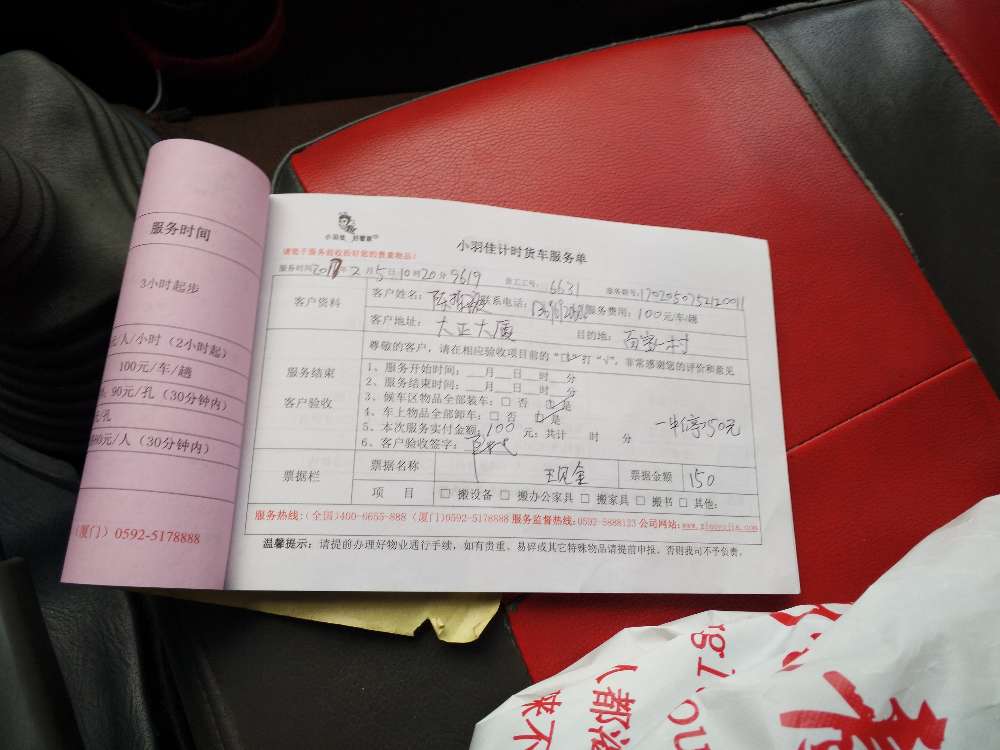 服务时间
3小时起步
元/人/小时（2小时起）
100元/车/趟
90元/孔（30分钟内）
元/孔
80元/人（30分钟内）
（厦门）0592-5178888
小羽佳 好管家
小羽佳计时货车服务单
请您于服务前收拾好您的贵重物品！
服务时间2017年2月5日10时20分 9619 员工工号：6631 服务单号：1702050752120011
客户资料
客户姓名： 联系电话： 服务费用：100元/车/趟
客户地址：大正大厦 目的地：百家村
尊敬的客户，请在相应验收项目前的“□”打“√”，非常感谢您的评价和意见
服务结束
客户验收
1、服务开始时间：__月__日__时__分
2、服务结束时间：__月__日__时__分
3、候车区物品全部装车：□ 否 □ 是
4、车上物品全部卸车：□ 否 ☑ 是
5、本次服务实付金额：100 元；共计 时 分
一中停50元
6、客户验收签字：
票据栏
票据名称 现金 票据金额 150
项 目 □ 搬设备 □ 搬办公家具 □ 搬家具 □ 搬书 □ 其他：
服务热线：（全国）400-6655-888（厦门）0592-5178888 服务监督热线：0592-5888123 公司网站：www.xiaoyujia.com
温馨提示：请提前办理好物业通行手续，如有贵重、易碎或其它特殊物品请提前申报。否则我司不予负责。
（都
味不